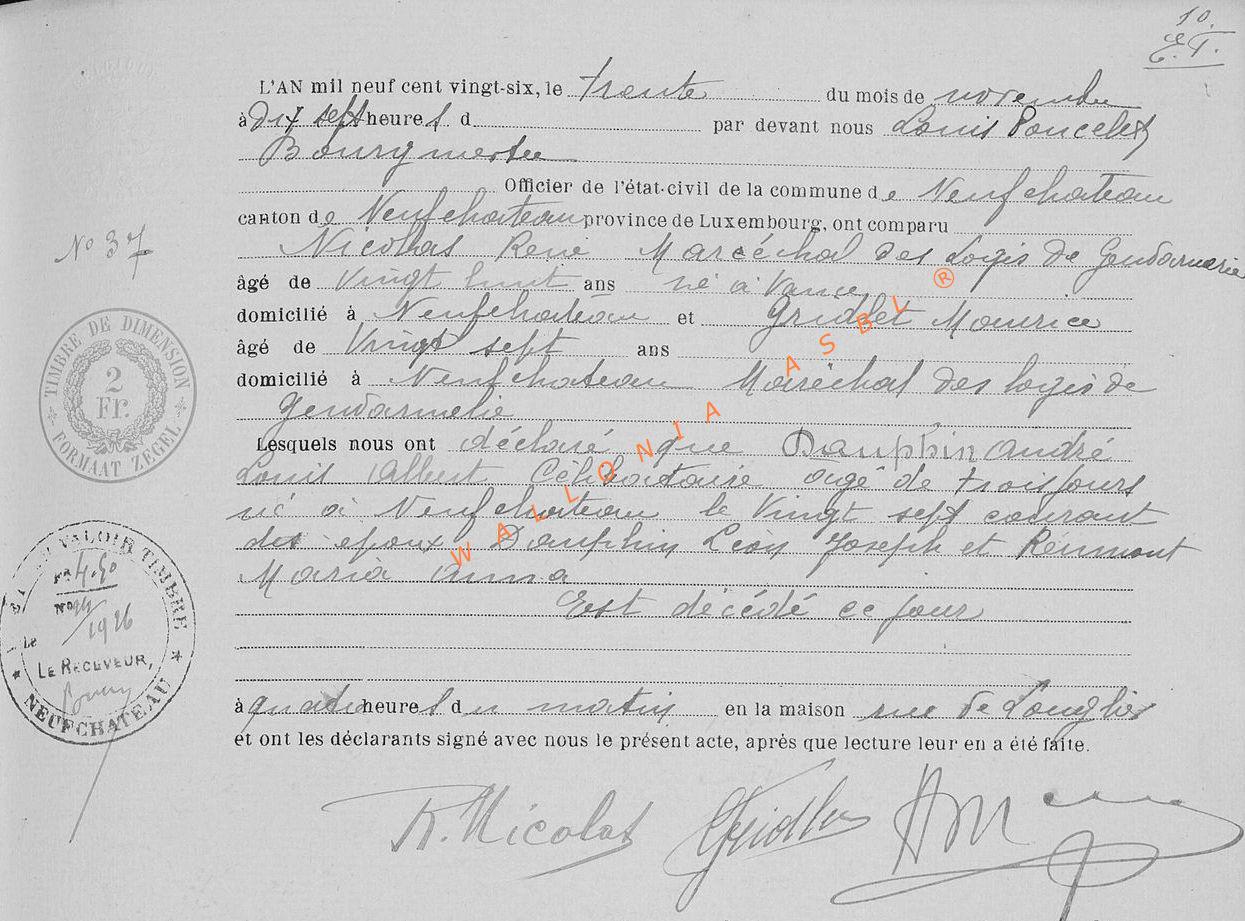 10.
E.T.
L'AN mil neuf cent vingt-six, le trente du mois de novembre
à Dix sept heures d par devant nous Louis Poncelet
Bourgmestre
Officier de l'état-civil de la commune de Neufchateau
canton de Neufchateau province de Luxembourg, ont comparu
Nicolas René Maréchal des Logis de Gendarmerie
âgé de Vingt huit ans né à Vance
domicilié à Neufchateau et Gridlet Maurice
âgé de Vingt sept ans
domicilié à Neufchateau Maréchal des logis de
Gendarmerie
Lesquels nous ont déclaré que Dauphin André
Louis Albert Célibataire agé de trois jours
né à Neufchateau le Vingt sept courant
des époux Dauphin Léon Joseph et Reumont
Maria Anna
Est décédé ce jour
à quatre heures du matin en la maison rue de Longlier
et ont les déclarants signé avec nous le présent acte, après que lecture leur en a été faite.
R. Nicolas Gridlet
No 37
TIMBRE DE DIMENSION
2
Fr.
FORMAAT ZEGEL
VALOIR TIMBRE
FR 4.50
No
1926
Le
LE RECEVEUR,
NEUFCHATEAU
WALLONIA ASBL ®